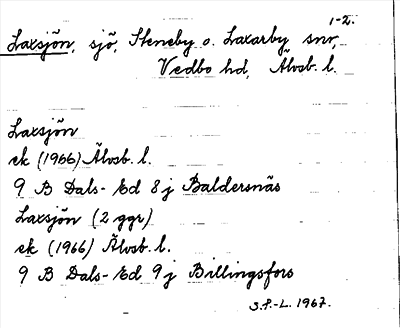 1-2.
Laxsjön, sjö, Steneby o. Laxarby snr,
Vedbo hd, Älvsb. l.
Laxsjön
ek (1966) Älvsb. l.
9 B Dals-Ed 8 j Baldersnäs
Laxsjön (2 ggr)
ek (1966) Älvsb. l.
9 B Dals-Ed 9 j Billingsfors
S.P.-L. 1967.